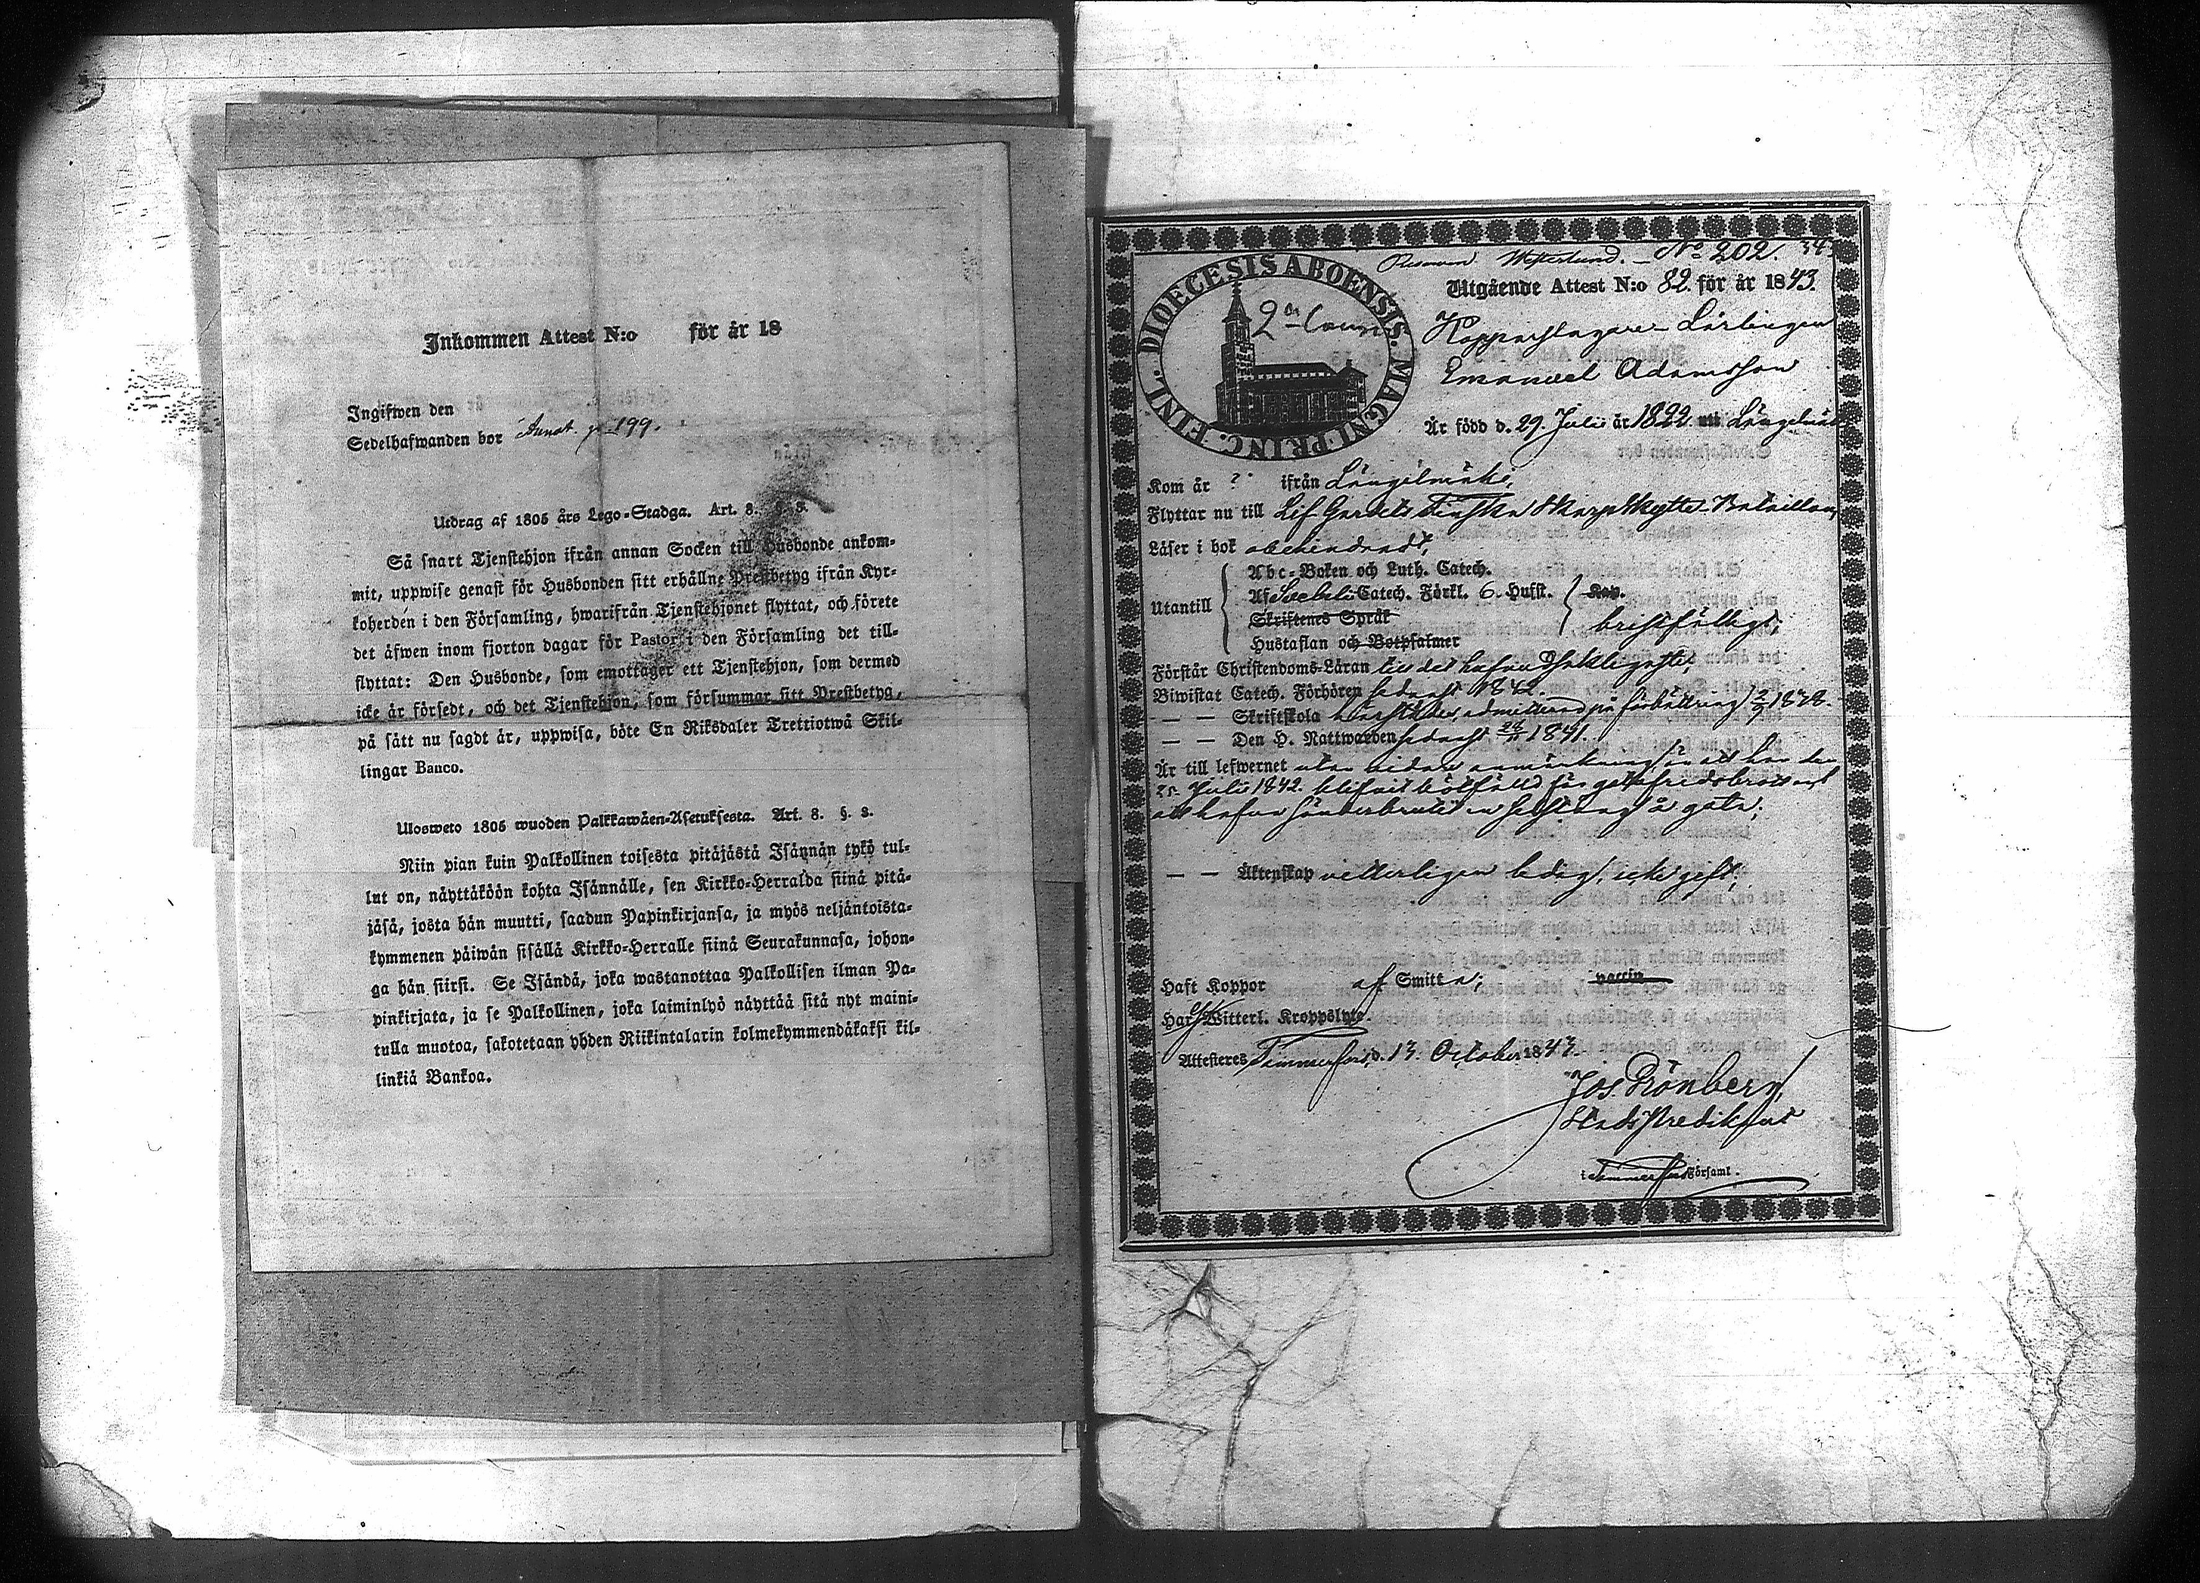 Inkommen Attest N:o för år 18
Ingifwen den
Sedelhafwanden bor Annot. p. 199.
Utdrag af 1805 års Lego-Stadga. Art. 8. §. 8.
Så snart Tjenstehjon ifrån annan Socken till Husbonde ankom-
mit, uppwise genast för Husbonden sitt erhållne Prestbetyg ifrån Kyr-
koherden i den Församling, hwarifrån Tjenstehjonet flyttat, och förete
det äfwen inom fjorton dagar för Pastor i den Församling det till-
flyttat: Den Husbonde, som emottager ett Tjenstehjon, som dermed
icke är försedt, och det Tjenstehjon, som försummar sitt Prestbetyg,
på sätt nu sagdt är, uppwisa, böte En Riksdaler Trettiotwå Skil-
lingar Banco.
Ulosweto 1805 wuoden Palkkawäen-Asetuksesta. Art. 8. §. 8.
Niin pian kuin Palkollinen toisesta pitäjästä Isännän tykö tul-
lut on, näyttäköön kohta Isännälle, sen Kirkko-Herralda siinä pitä-
jäsä, josta hän muutti, saadun Papinkirjansa, ja myös neljäntoista-
kymmenen päiwän sisällä Kirkko-Herralle siinä Seurakunnasa, johon-
ga hän siirsi. Se Isändä, joka wastanottaa Palkollisen ilman Pa-
pinkirjata, ja se Palkollinen, joka laiminlyö näyttää sitä nyt maini-
tulla muotoa, sakotetaan yhden Riikintalarin kolmekymmendäkaksi kil-
linkiä Bankoa.
Westerlund. No 202. 343
DIOECESIS ABOENSIS. MAGNI PRINC. FINL.
Utgående Attest N:o 82. för år 1843.
Kopparslagare Lärlingen
Emanuel Adamsson
Är född d. 29. Julii år 1822 uti Längelmäki
Kom år ? ifrån Längelmäki,
Flyttar nu till Lif Gardets Finska Skarpskytte Bataillon,
Läser i bok obehindradt,
Utantill
Abc-Boken och Luth. Catech.
Af Svebelii Catech. Förkl. 6. Hufst. Kap.
Skriftenes Språk
bristfälligt,
Hustaflan och Botpsalmer
Förstår Christendoms-Läran
Biwistat Catech. Förhören sednast 1842.
— — Skriftskola admitterad på förbättring 2/7 1838.
— — Den H. Nattwarden sednast 1841.
Är till lefwernet utan widare anmärkning än att han den
25 Julii 1842. blifvit bötfälld för gatufridsbrott
att hafva sönderbrutit en på gata;
— — Äktenskap vitterligen ledig, icke gift,
Haft Koppor af Smitta; vaccin
Har Witterl. Kroppslyte
Attesteres Tammerfors, d. 13. October 1843.
Jos. Grönberg,
Stadspredikant
i Tammerfors Församl.